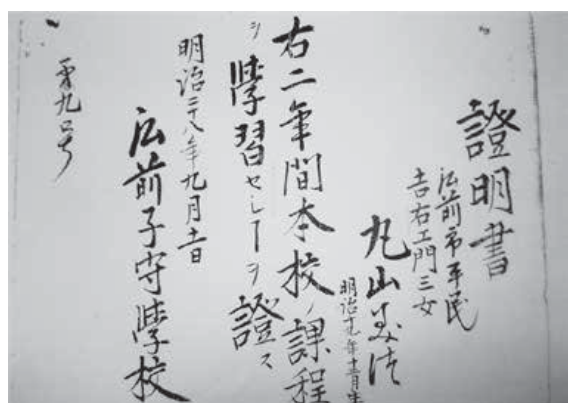 證明書
弘前市平民
吉右エ門三女
丸山
明治十九年十二月生
右二年間本校ノ課程
ヲ學習セシヿヲ證ス
明治二十八年九月十一日
弘前子守學校
第九号